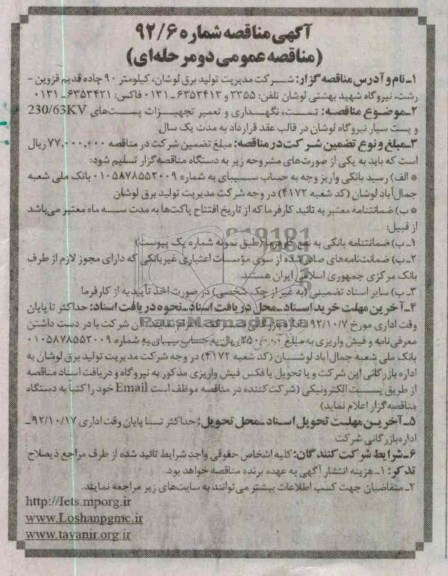 آگهی مناقصه شماره ۹۲/۶
(مناقصه عمومی دو مرحله‌ای)
۱ـ نام و آدرس مناقصه گزار: شرکت مدیریت تولید برق لوشان، کیلومتر ۹۰ جاده قدیم قزوین -
رشت، نیروگاه شهید بهشتی لوشان تلفن: ۳۳۵۵ و ۶۳۵۳۴۱۳ـ۰۱۳۱ فاکس: ۶۳۵۳۴۲۱ـ۰۱۳۱
۲ـ موضوع مناقصه: تست، نگهداری و تعمیر تجهیزات پست‌های 230/63KV
و پست سیار نیروگاه لوشان در قالب عقد قرارداد به مدت یک سال
۳ـ مبلغ و نوع تضمین شرکت در مناقصه: مبلغ تضمین شرکت در مناقصه ۷۷,۰۰۰,۰۰۰ ریال
است که باید به یکی از صورت‌های مشروحه زیر به دستگاه مناقصه‌گزار تسلیم شود:
* الف) رسید بانکی واریز وجه به حساب سیبای به شماره ۰۱۰۵۸۷۸۵۵۲۰۰۹ بانک ملی شعبه
جمال‌آباد لوشان (کد شعبه ۴۱۷۲) در وجه شرکت مدیریت تولید برق لوشان
* ب) ضمانتنامه معتبر به تائید کارفرما که از تاریخ افتتاح پاکت‌ها به مدت سه ماه معتبر می‌باشد
از قبیل:
ب۱ـ) ضمانتنامه بانکی به نفع کارفرما (طبق نمونه شماره یک پیوست)
ب۲ـ) ضمانت‌نامه‌های صادر شده از سوی مؤسسات اعتباری غیربانکی که دارای مجوز لازم از طرف
بانک مرکزی جمهوری اسلامی ایران هستند.
ب۳ـ) سایر اسناد تضمینی (به غیر از چک شخصی) در صورت اخذ تأییدیه از کارفرما
۴ـ آخرین مهلت خرید اسناد ـ محل دریافت اسناد ـ نحوه دریافت اسناد: حداکثر تا پایان
وقت اداری مورخ ۹۲/۱۰/۷ در اداره بازرگانی شرکت با در دست داشتن
معرفی‌نامه و فیش واریزی به مبلغ ۲۵۰/۰۰۰ ریال به حساب سیبای به شماره ۰۱۰۵۸۷۸۵۵۲۰۰۹
بانک ملی شعبه جمال آباد لوشان (کد شعبه ۴۱۷۲) در وجه شرکت مدیریت تولید برق لوشان به
اداره بازرگانی این شرکت و یا تحویل با فکس فیش واریزی مذکور به نیروگاه و دریافت اسناد مناقصه
از طریق پست الکترونیکی (شرکت‌کننده در مناقصه موظف است Email خود را کتباً به دستگاه
مناقصه‌گزار اعلام نماید)
۵ـ آخرین مهلت تحویل اسناد ـ محل تحویل: حداکثر تا پایان وقت اداری ۹۲/۱۰/۱۷ـ
اداره بازرگانی شرکت
۶ـ شرایط شرکت کنندگان: کلیه اشخاص حقوقی واجد شرایط تائید شده از طرف مراجع ذیصلاح
تذکر: ۱ـ هزینه انتشار آگهی به عهده برنده مناقصه خواهد بود.
۲ـ متقاضیان جهت کسب اطلاعات بیشتر می‌توانند به سایت‌های زیر مراجعه نمایند.
http://Iets.mporg.ir
www.Loshanpgmc.ir
www.tavanir.org.ir